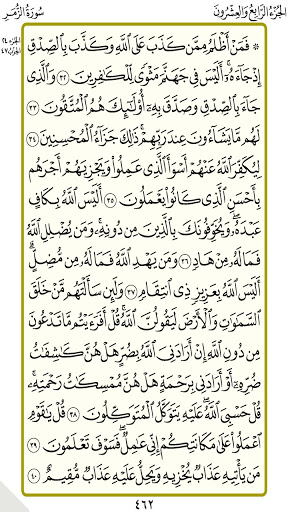 الجزء الرابع والعشرون
سورة الزمر
الجزء ٢٤
الحزب ٤٧
۞ فَمَنْ أَظْلَمُ مِمَّن كَذَبَ عَلَى ٱللَّهِ وَكَذَّبَ بِٱلصِّدْقِ
إِذْ جَآءَهُۥٓ ۚ أَلَيْسَ فِى جَهَنَّمَ مَثْوًى لِّلْكَٰفِرِينَ ٣٢ وَٱلَّذِى
جَآءَ بِٱلصِّدْقِ وَصَدَّقَ بِهِۦٓ ۙ أُو۟لَٰٓئِكَ هُمُ ٱلْمُتَّقُونَ ٣٣
لَهُم مَّا يَشَآءُونَ عِندَ رَبِّهِمْ ۚ ذَٰلِكَ جَزَآءُ ٱلْمُحْسِنِينَ ٣٤
لِيُكَفِّرَ ٱللَّهُ عَنْهُمْ أَسْوَأَ ٱلَّذِى عَمِلُوا۟ وَيَجْزِيَهُمْ أَجْرَهُم
بِأَحْسَنِ ٱلَّذِى كَانُوا۟ يَعْمَلُونَ ٣٥ أَلَيْسَ ٱللَّهُ بِكَافٍ
عَبْدَهُۥ ۖ وَيُخَوِّفُونَكَ بِٱلَّذِينَ مِن دُونِهِۦ ۚ وَمَن يُضْلِلِ ٱللَّهُ
فَمَا لَهُۥ مِنْ هَادٍ ٣٦ وَمَن يَهْدِ ٱللَّهُ فَمَا لَهُۥ مِن مُّضِلٍّ ۗ
أَلَيْسَ ٱللَّهُ بِعَزِيزٍ ذِى ٱنتِقَامٍ ٣٧ وَلَئِن سَأَلْتَهُم مَّنْ خَلَقَ
ٱلسَّمَٰوَٰتِ وَٱلْأَرْضَ لَيَقُولُنَّ ٱللَّهُ ۚ قُلْ أَفَرَءَيْتُم مَّا تَدْعُونَ
مِن دُونِ ٱللَّهِ إِنْ أَرَادَنِىَ ٱللَّهُ بِضُرٍّ هَلْ هُنَّ كَٰشِفَٰتُ
ضُرِّهِۦٓ أَوْ أَرَادَنِى بِرَحْمَةٍ هَلْ هُنَّ مُمْسِكَٰتُ رَحْمَتِهِۦ ۚ
قُلْ حَسْبِىَ ٱللَّهُ ۖ عَلَيْهِ يَتَوَكَّلُ ٱلْمُتَوَكِّلُونَ ٣٨ قُلْ يَٰقَوْمِ
ٱعْمَلُوا۟ عَلَىٰ مَكَانَتِكُمْ إِنِّى عَٰمِلٌ ۖ فَسَوْفَ تَعْلَمُونَ ٣٩
مَن يَأْتِيهِ عَذَابٌ يُخْزِيهِ وَيَحِلُّ عَلَيْهِ عَذَابٌ مُّقِيمٌ ٤٠
٤٦٢